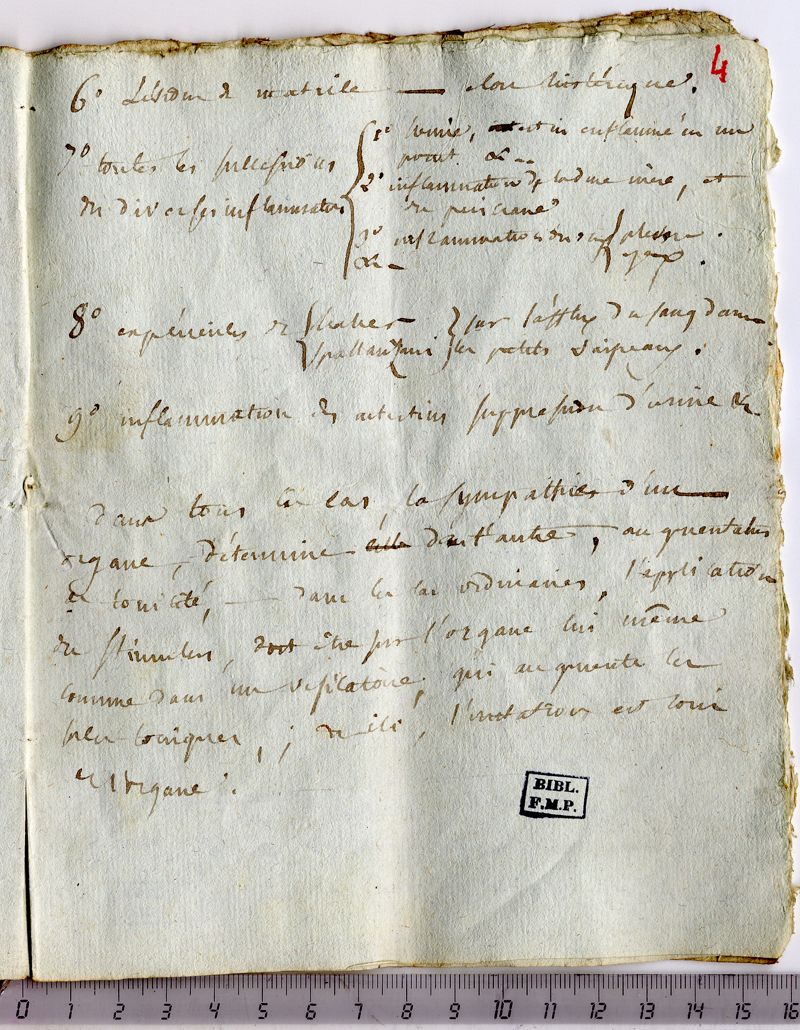 4
6° de matrice — clou histérique.
7° toutes les successions
des diverses inflammations
1° enflammé en un
point &c
2° inflammation de la dure mère, et
du pericrane
3° inflammation des plevre.
&c yeux.
8° expériences de haller
Spallanzani
sur l'afflux du sang dans
les petits vaisseaux.
9° inflammation des intestins suppression d'urine &c
Dans tous ces cas, la sympathie d'un
organe, détermine dans l'autre, augmentation
de tonicité, — dans les cas ordinaires, l'application
du stimulus, doit être sur l'organe lui même
comme dans un vésicatoire, qui augmente les
toniques, ; ici, l'irritation est loin
de l'organe.
BIBL.
F.M.P.
0 1 2 3 4 5 6 7 8 9 10 11 12 13 14 15 16